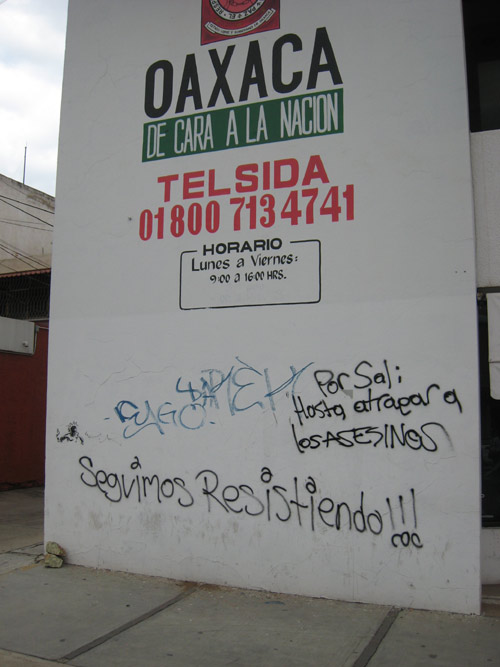 OAXACA
DE CARA A LA NACION
TELSIDA
01 800 713 4741
HORARIO
Lunes a Viernes:
9:00 a 16:00 HRS.
Por Sali:
Hasta atrapar a
los ASESINOS
Seguimos Resistiendo!!!